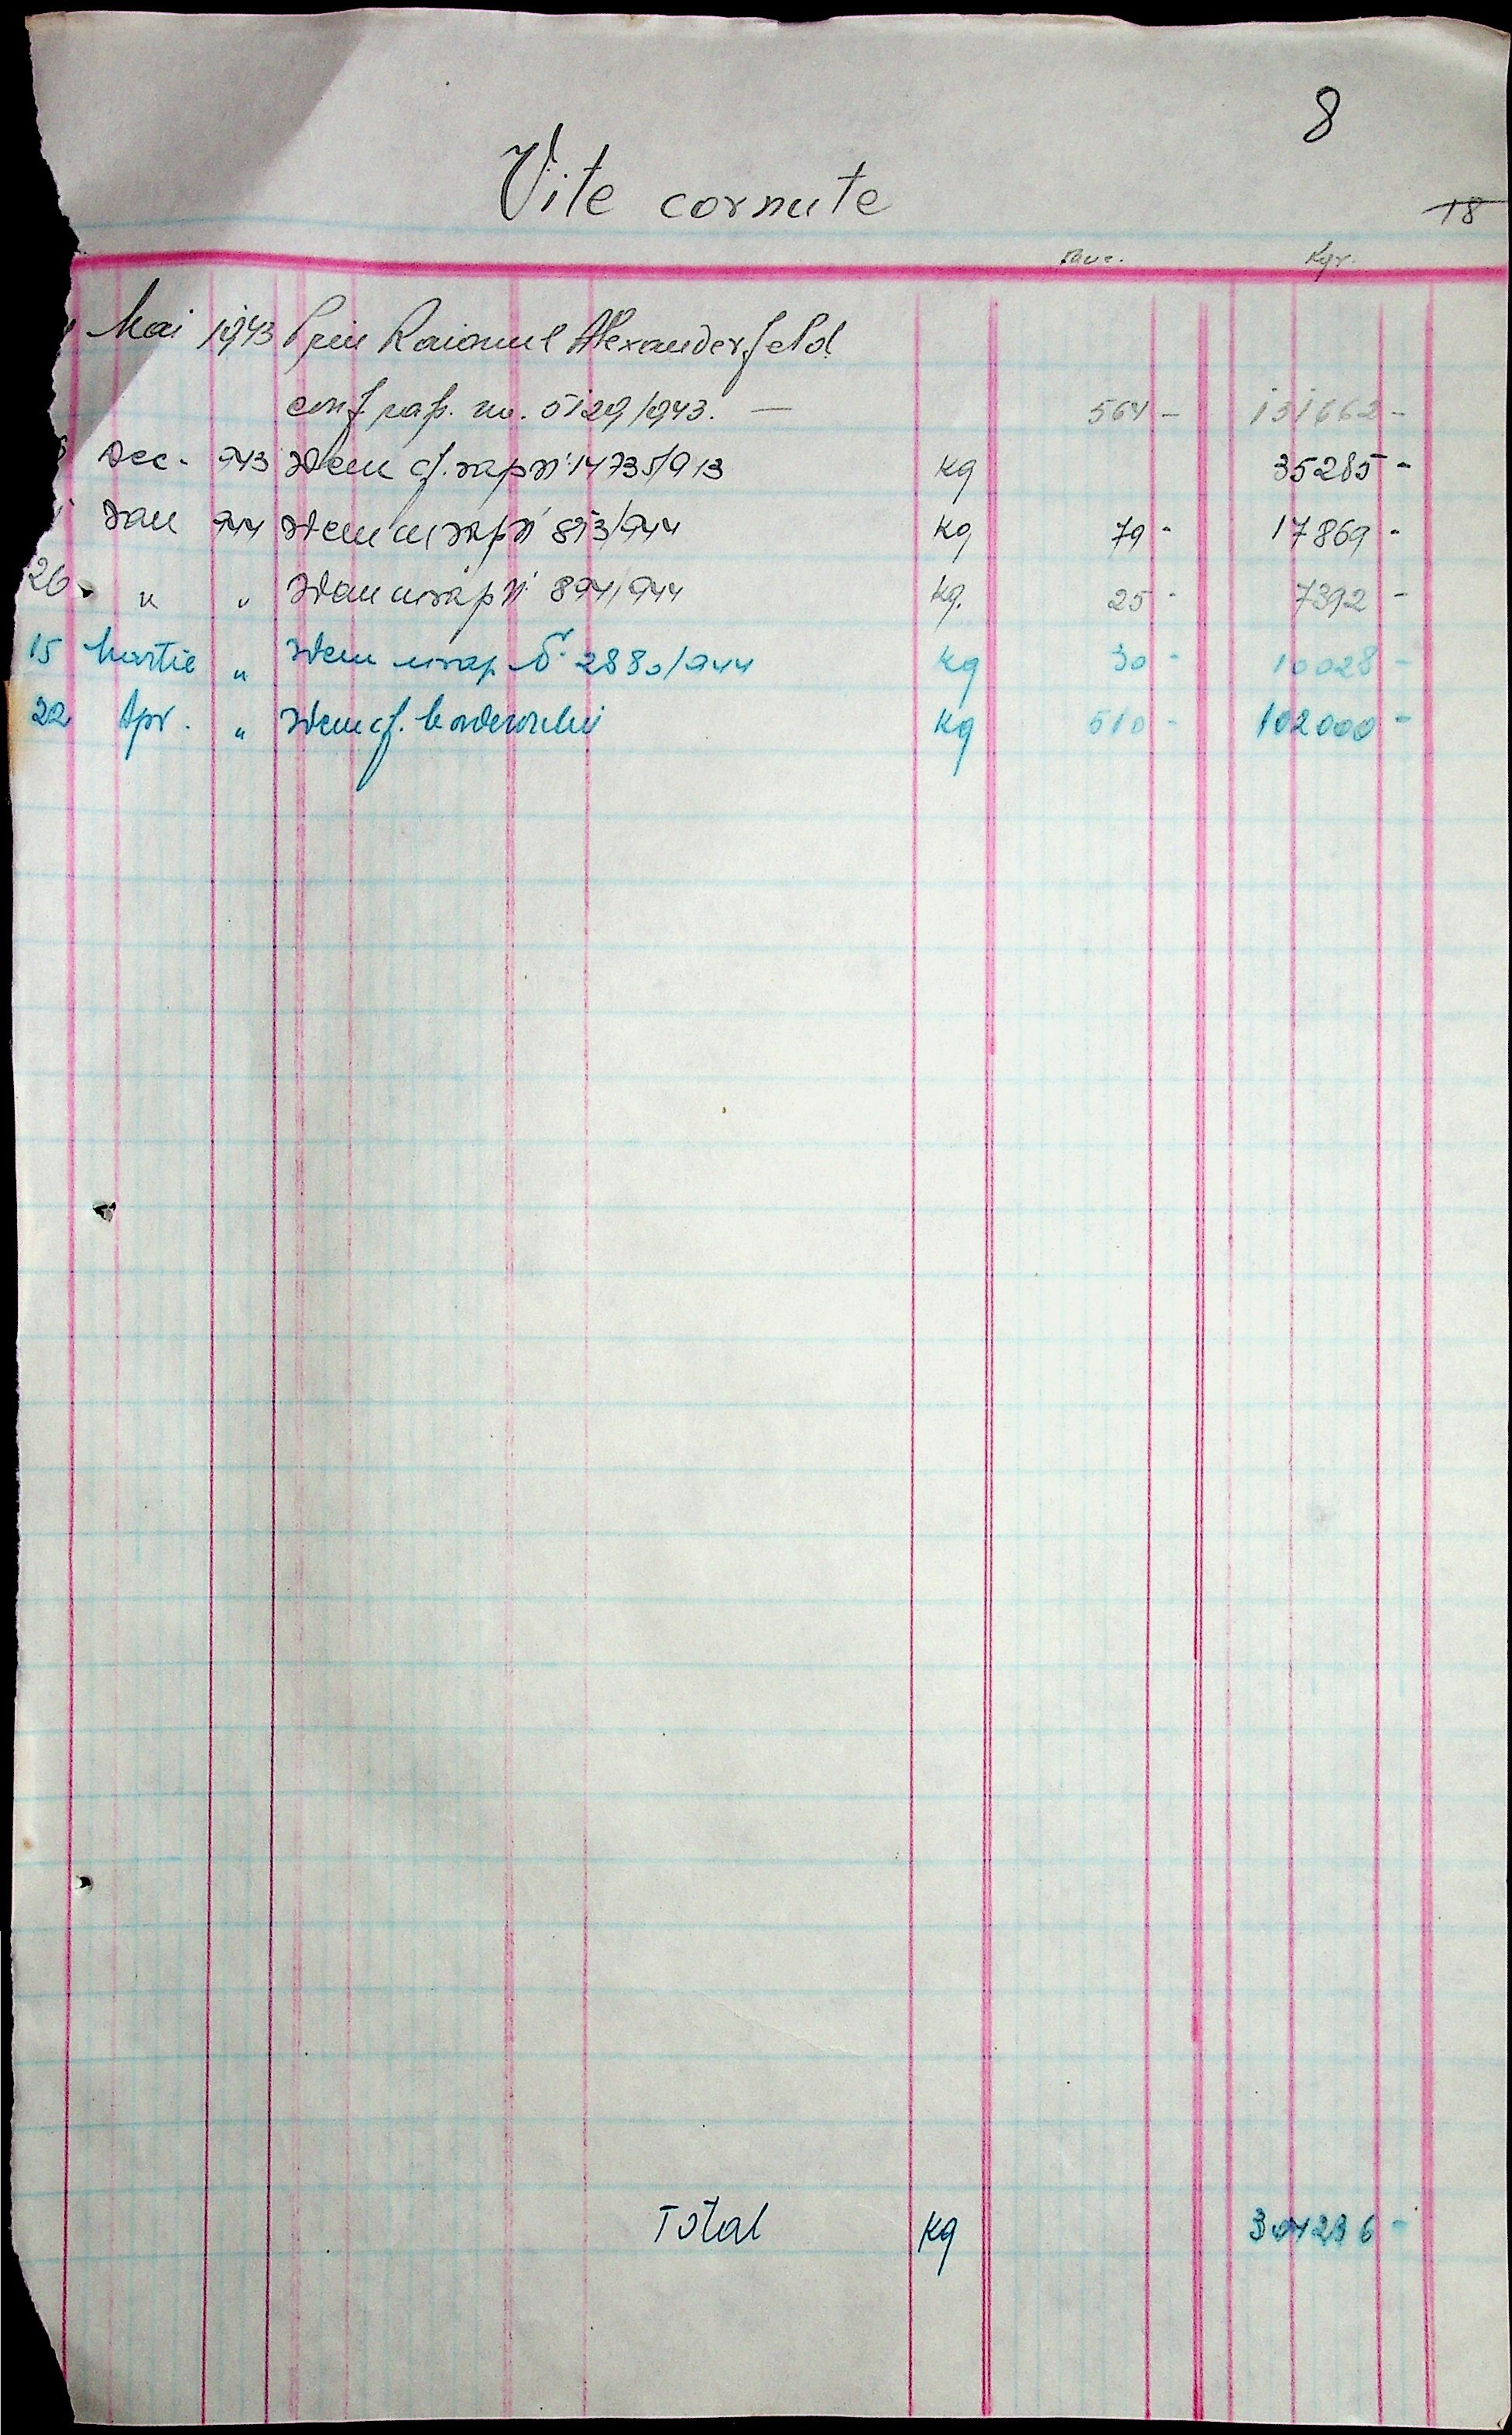 8
Vite cornute
18
Buc. Kgr.
Mai 1943 Prin Raionul Alexanderfeld
conf rap. no. 5129/943. — 564 - 131662 -
Dec. 943 Idem cf. rap N 14735/943 kg 35285 -
Ian 944 Idem cu rap N 893/944 kg 79 - 17869 -
26 " " Idem cu rap N 894/944 kg. 25 - 7392 -
15 Martie " Idem cu rap N 2880/944 kg 30 - 10028 -
22 Apr. " Idem cf. borderoului kg 510 - 102000 -
Total kg 304236 -